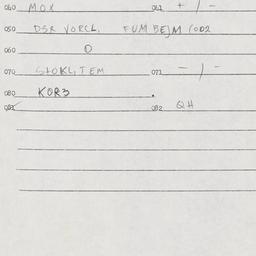 040 MOX 041 + / -
050 DSR VORCL. FUM BEJM 1002
060 0
070 STOKLITEM 071 - / -
080 KOR3
081 082 QH